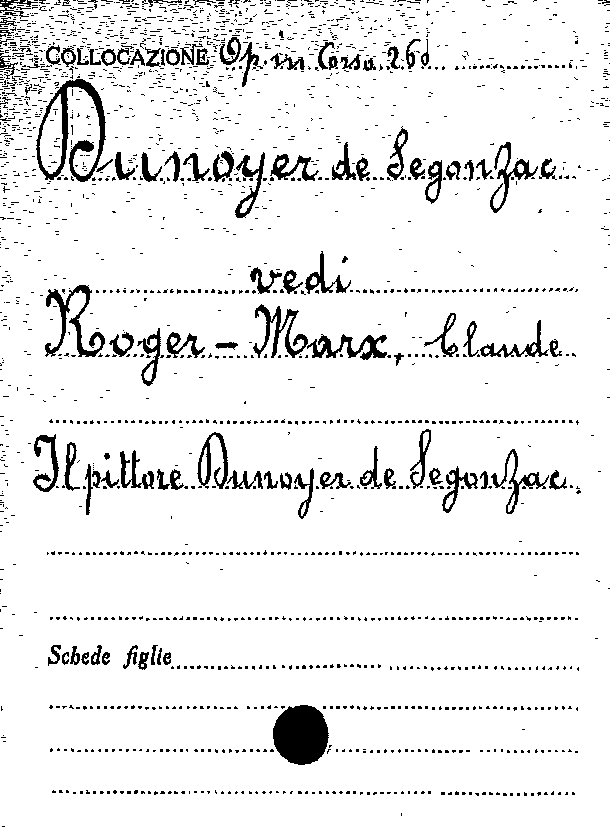 COLLOCAZIONE Op. in Corso 260
Dunoyer de Segonzac
vedi
Roger - Marx, Claude
Il pittore Dunoyer de Segonzac.
Schede figlie